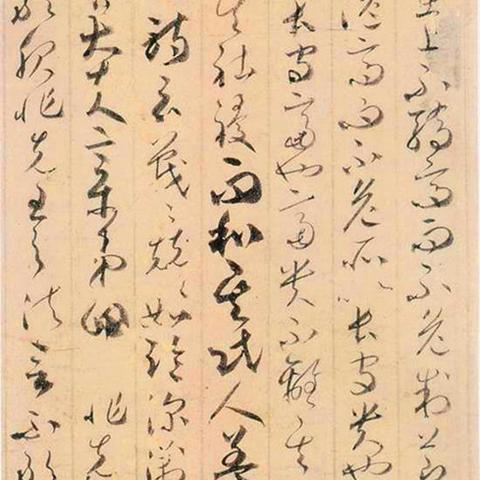 在上不驕高而不危制節
溢高而不危所以長守貴也
長守富也富貴不離其
其社稷而和其民人蓋
詩云戰〻兢〻如臨深淵
大夫章第四 非先
敢服非先王之法言不敢